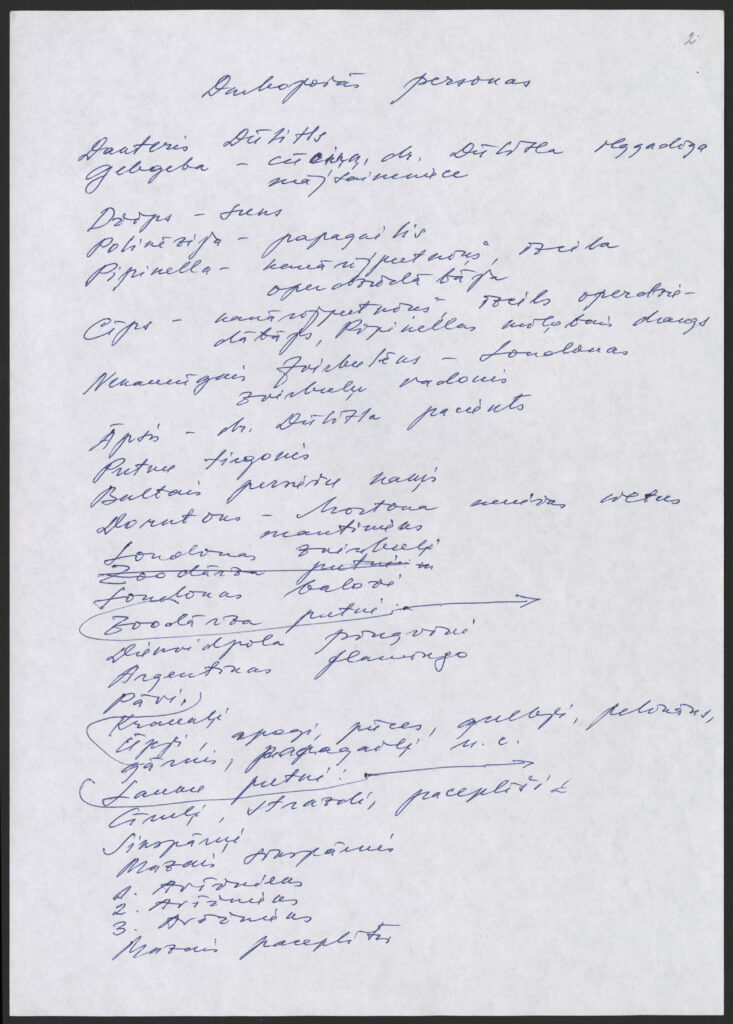 2
Darbojošās personas
Dakteris Dūlitls
Gebgeba – cūciņa, dr. Dūlitla ilggadīga
mājsaimniece
Džips – suns
Polinēzija – papagailis
Pipinella – kanārijputniņš, izcila
operdziedātāja
Cīps – kanārijputniņš izcils operdzie-
dātājs, Pipinellas mūžabais draugs
Nekaunīgais Zvirbulēns – Londonas
zvirbuļu vadonis
Āpsis – dr. Dūlitla pacients
Putnu tirgonis
Baltais persiešu kaķis
Dorntons – Mortona muižas vietus
mantinieks
Londonas zvirbuļi
Zoodārza putni
Londonas baloži
Zoodārza putni
Dienvidpola pingvīni
Argentīnas flamingo
Pāvi,
Kraukļi
Ērgļi, apogi, pūces, gulbji, pelikāns,
gārnis, papagaiļi u.c.
Lauku putni:
Cīruļi, strazdi, paceplīši
Sikspārņi
Mazais sikspārnis
1. Ārižnieks
2. Ārižnieks
3. Ārižnieks
Mazais paceplītis